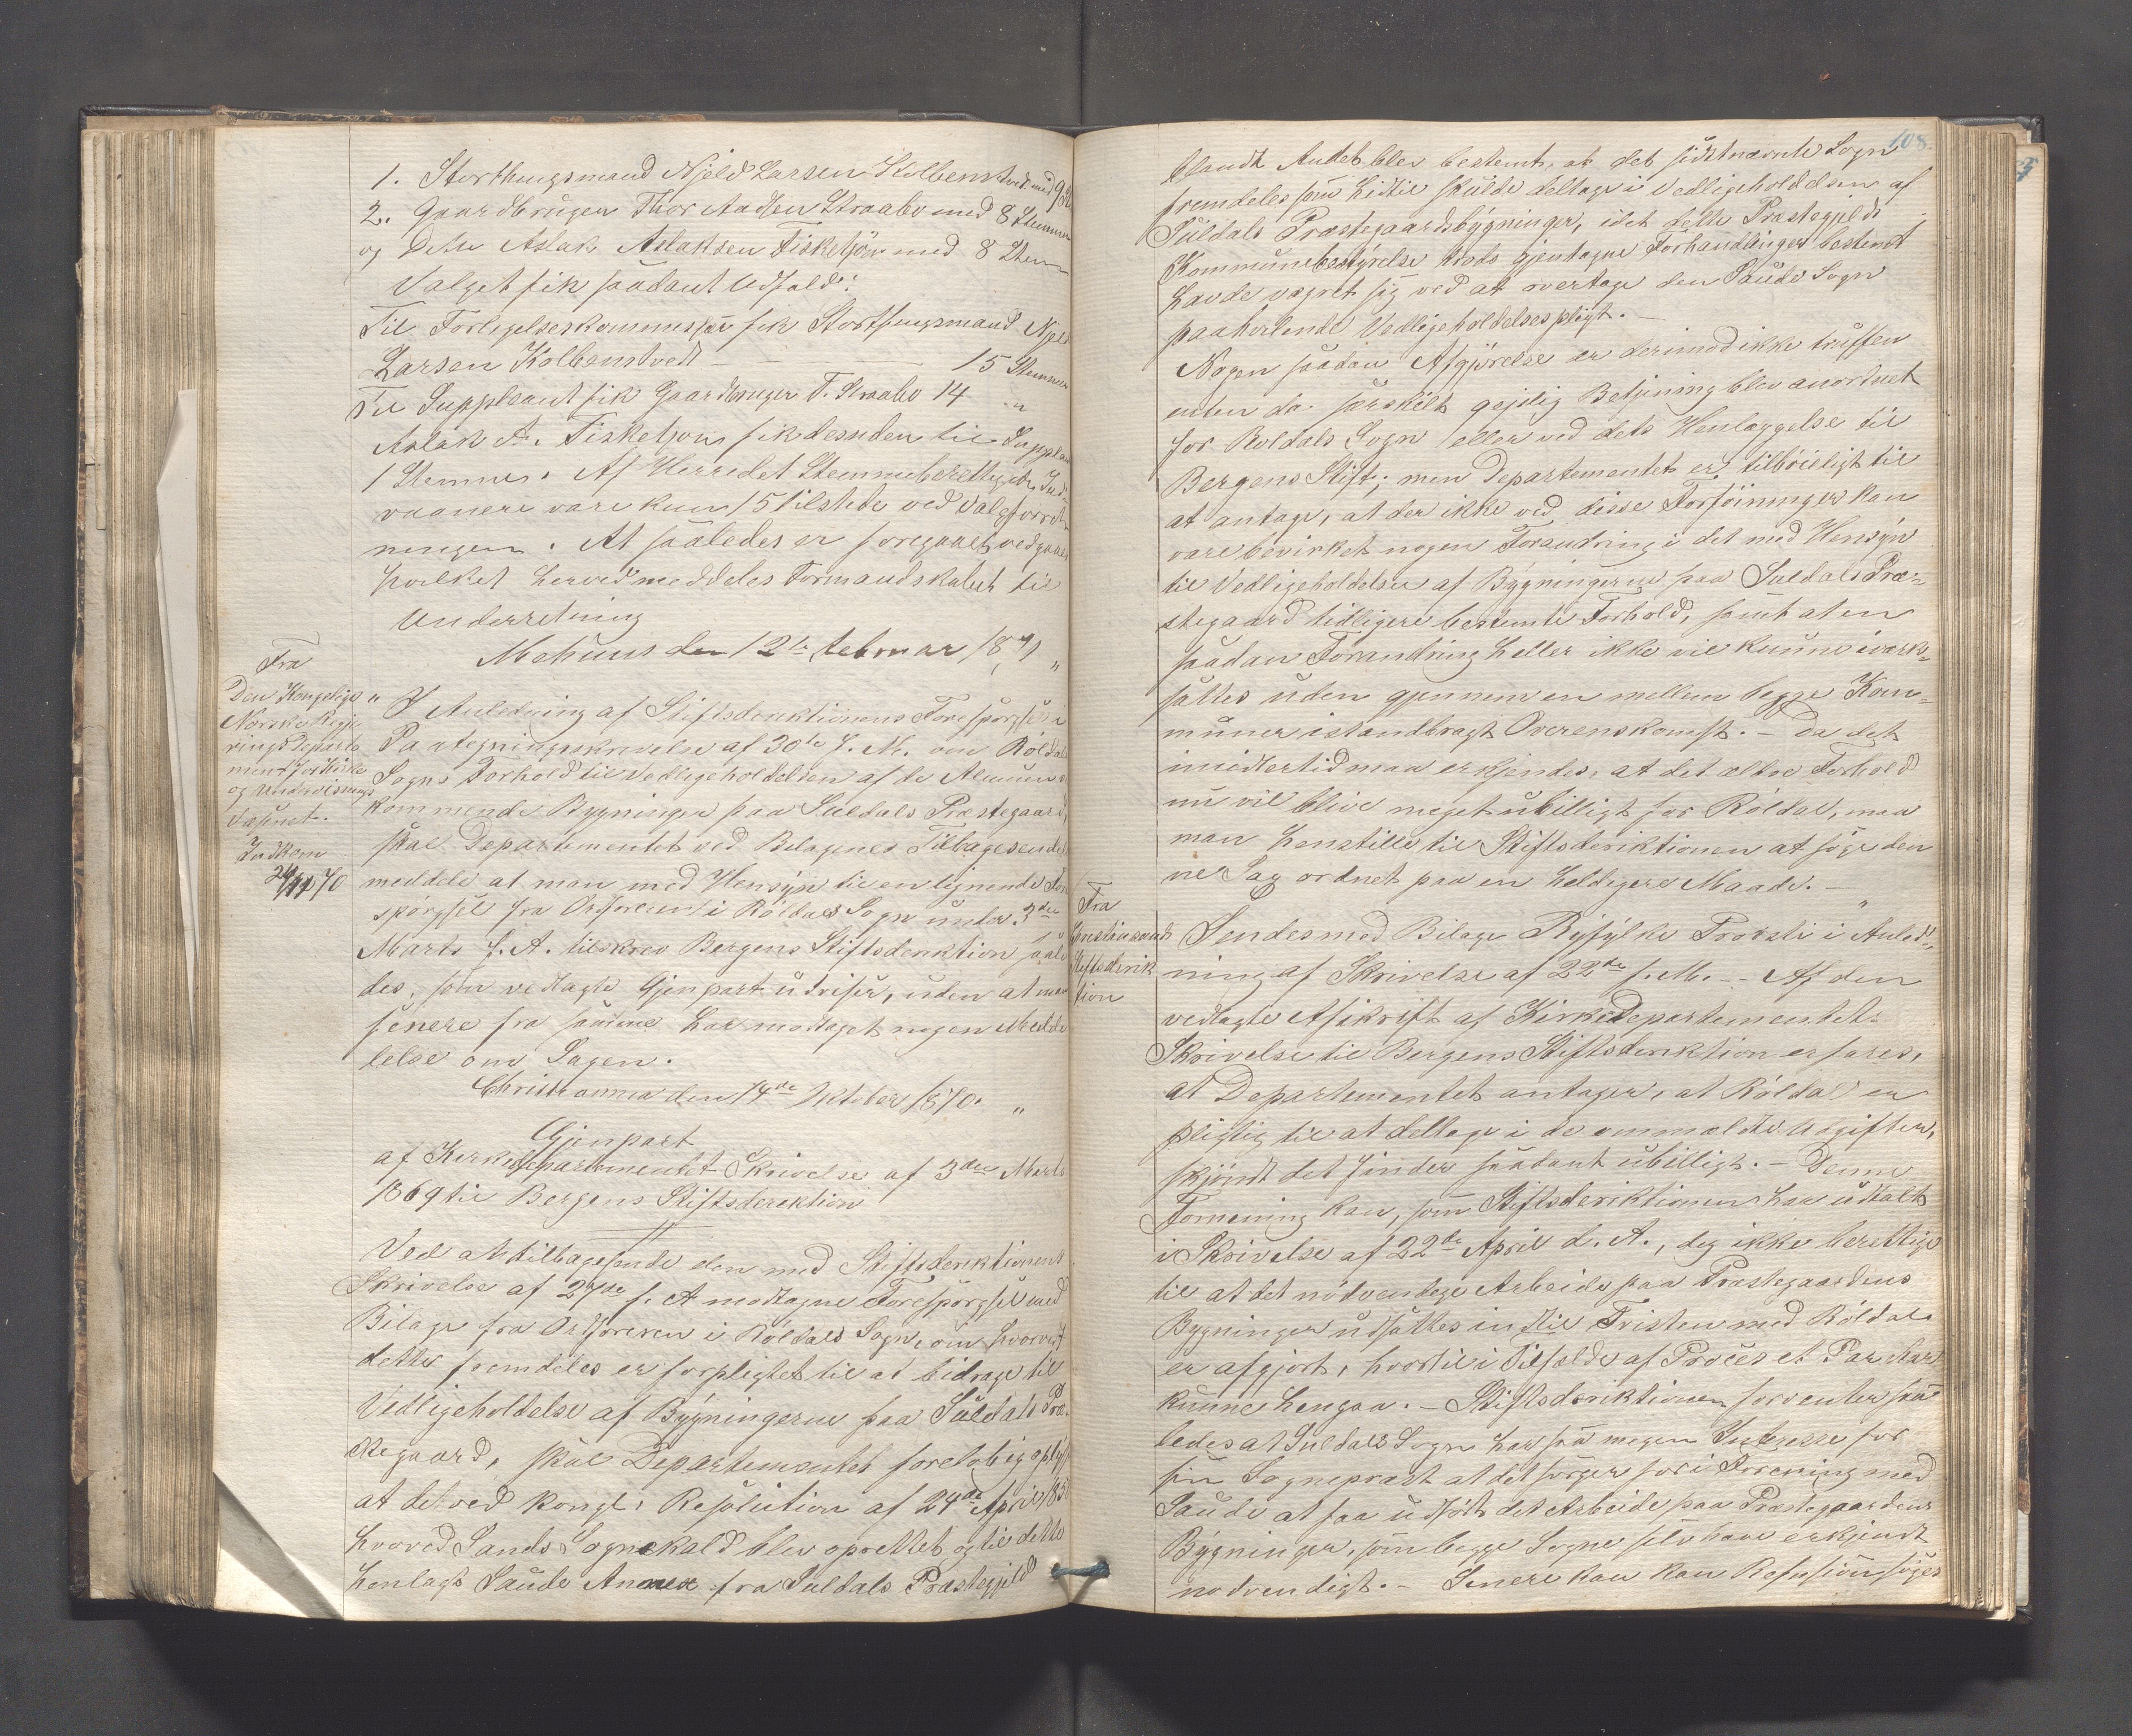 1. Storthingsmand Njeld Larsen Kolbenstvedt med 9 St
2. Gaardbruger Thor Aadsen Straabo med 8 Stemmer
og Ditto Aslak Aslaksen Fisketjön med 8 Stem
Valget fik saadant Udfald:
Til Forligelseskommissær fik Storthingsmand Njeld
Larsen Kolbenstvedt — 15 Stemmer
Til Suppleant fik Gaardbruger T. Straabo 14 "
Aslak A. Fisketjøn fik desuden til Supplea
1 Stemme. Af Herredet Stemmeberettigede Ind-
vaanere vare kun 15 tilstede ved Valgforret
ningen. At saaledes er foregaaet vedgaaes
hvilket herved meddeles Formandskabet til
Underretning
Mehuus den 12te Februar 1871 "
Fra
Den Kongelige
Norske Regje
rings Departe
ment for Kirke
og Undervisnings
Væsenet.
Indkom
26/11 70
" I Anledning af Stiftsdirektionens Forespørgsel i
Paategningsskrivelse af 30te f. M. om Röldals
Sogns Forhold til Vedligeholdelsen af de Almuen ved
kommende Bygninger paa Suldals Præstegaard,
skal Departementet ved Bilagenes Tilbagesendelse
meddele at man med Hensyn til en lignende Fore
spørgsel fra Ordføreren i Röldals Sogn under 3die
Marts f. A. tilskrev Bergens Stiftsdirektion saale
des, som vedlagte Gjenpart udviser, uden at man
senere fra samme har modtaget nogen Medde
lelse om Sagen.
Christiania den 14de Oktober 1870. "
Gjenpart
af Kirkedepartementet Skrivelse af 3die Marts
1869 til Bergens Stiftsdirektion
Ved at tilbagesende den med Stiftsdirektionens
Skrivelse af 29de f. A modtagne Forespørgsel med
Bilage fra Ordføreren i Röldals Sogn, om hvorvidt
dette fremdeles er forpligtet til at bidrage til
Vedligeholdelse af Bygningerne paa Suldals Præ-
stegaard, skal Departementet foreløbig oplyse
at det ved kongl. Resolution af 24de April 185
hvorved Sands Sognekald blev oprettet og til dette
henlagt Saude Annex fra Suldals Præstegjeld
108.
blandt Andet blev bestemt, at det sidstnævnte Sogn
fremdeles som hidtil skulde deltage i Vedligeholdelsen af
Suldals Præstegaardsbygninger, idet dette Præstegjelds
Kommunebestyrelse trods gjentagne Forhandlinger bestemt
havde vægret sig ved at overtage den Saude Sogn
paahvilende Vedligeholdelsespligt.—
Nogen saadan Afgjörelse er derimod ikke truffen
enten da særskilt geistlig Betjening blev anordnet
for Roldals Sogn eller ved dets Henlæggelse til
Bergens Stift; men Departementet er tilbøieligt til
at antage, at der ikke ved disse Forføininger kan
være bevirket nogen Forandring i det med Hensyn
til Vedligeholdelsen af Bygningerne paa Suldals Præ-
stegaard tidligere bestemte Forhold, samt at en
saadan Forandring heller ikke vil kunne iværk-
sættes uden gjennem en mellem begge Kom-
muner istandbragt Overenskomst.— Da det
imidlertid maa erkjendes, at det ældre Forhold
nu vil blive meget ubilligt for Röldal, maa
man henstille til Stiftsdirektionen at søge den
ne Sag ordnet paa en heldigere Maade.—
"
Fra
Christiansands
Stiftsdirek
tion
Sendes med Bilage Ryfylke Provsti i Anled-
ning af Skrivelse af 22de f. M. — Af den
vedlagte Afskrift af Kirkedepartementets
Skrivelse til Bergens Stiftsdirektion erfares,
at Departementet antager, at Röldal er
pligtig til at deltage i de ommeldte Udgifter,
skjöndt det finder saadant ubilligt.— Denne
Formening kan, som Stiftsdirektionen har udtalt
i Skrivelse af 22de April d. A., dog ikke berettige
til at det nödvendige Arbeide paa Præstegaardens
Bygninger udsættes indtil Tvisten med Röldal
er afgjort, hvortil i Tilfælde af Proces et Par Aar
kunne hengaa.— Stiftsdirektionen forventer saa
ledes at Suldals Sogn har saa megen Interesse for
sin Sognepræst at det sørger for i Forening med
Saude at faa udført det Arbeide paa Præstegaardens
Bygninger, som begge Sogne selv have erkjendt
nødvendigt.— Senere kan kan Refusion søges